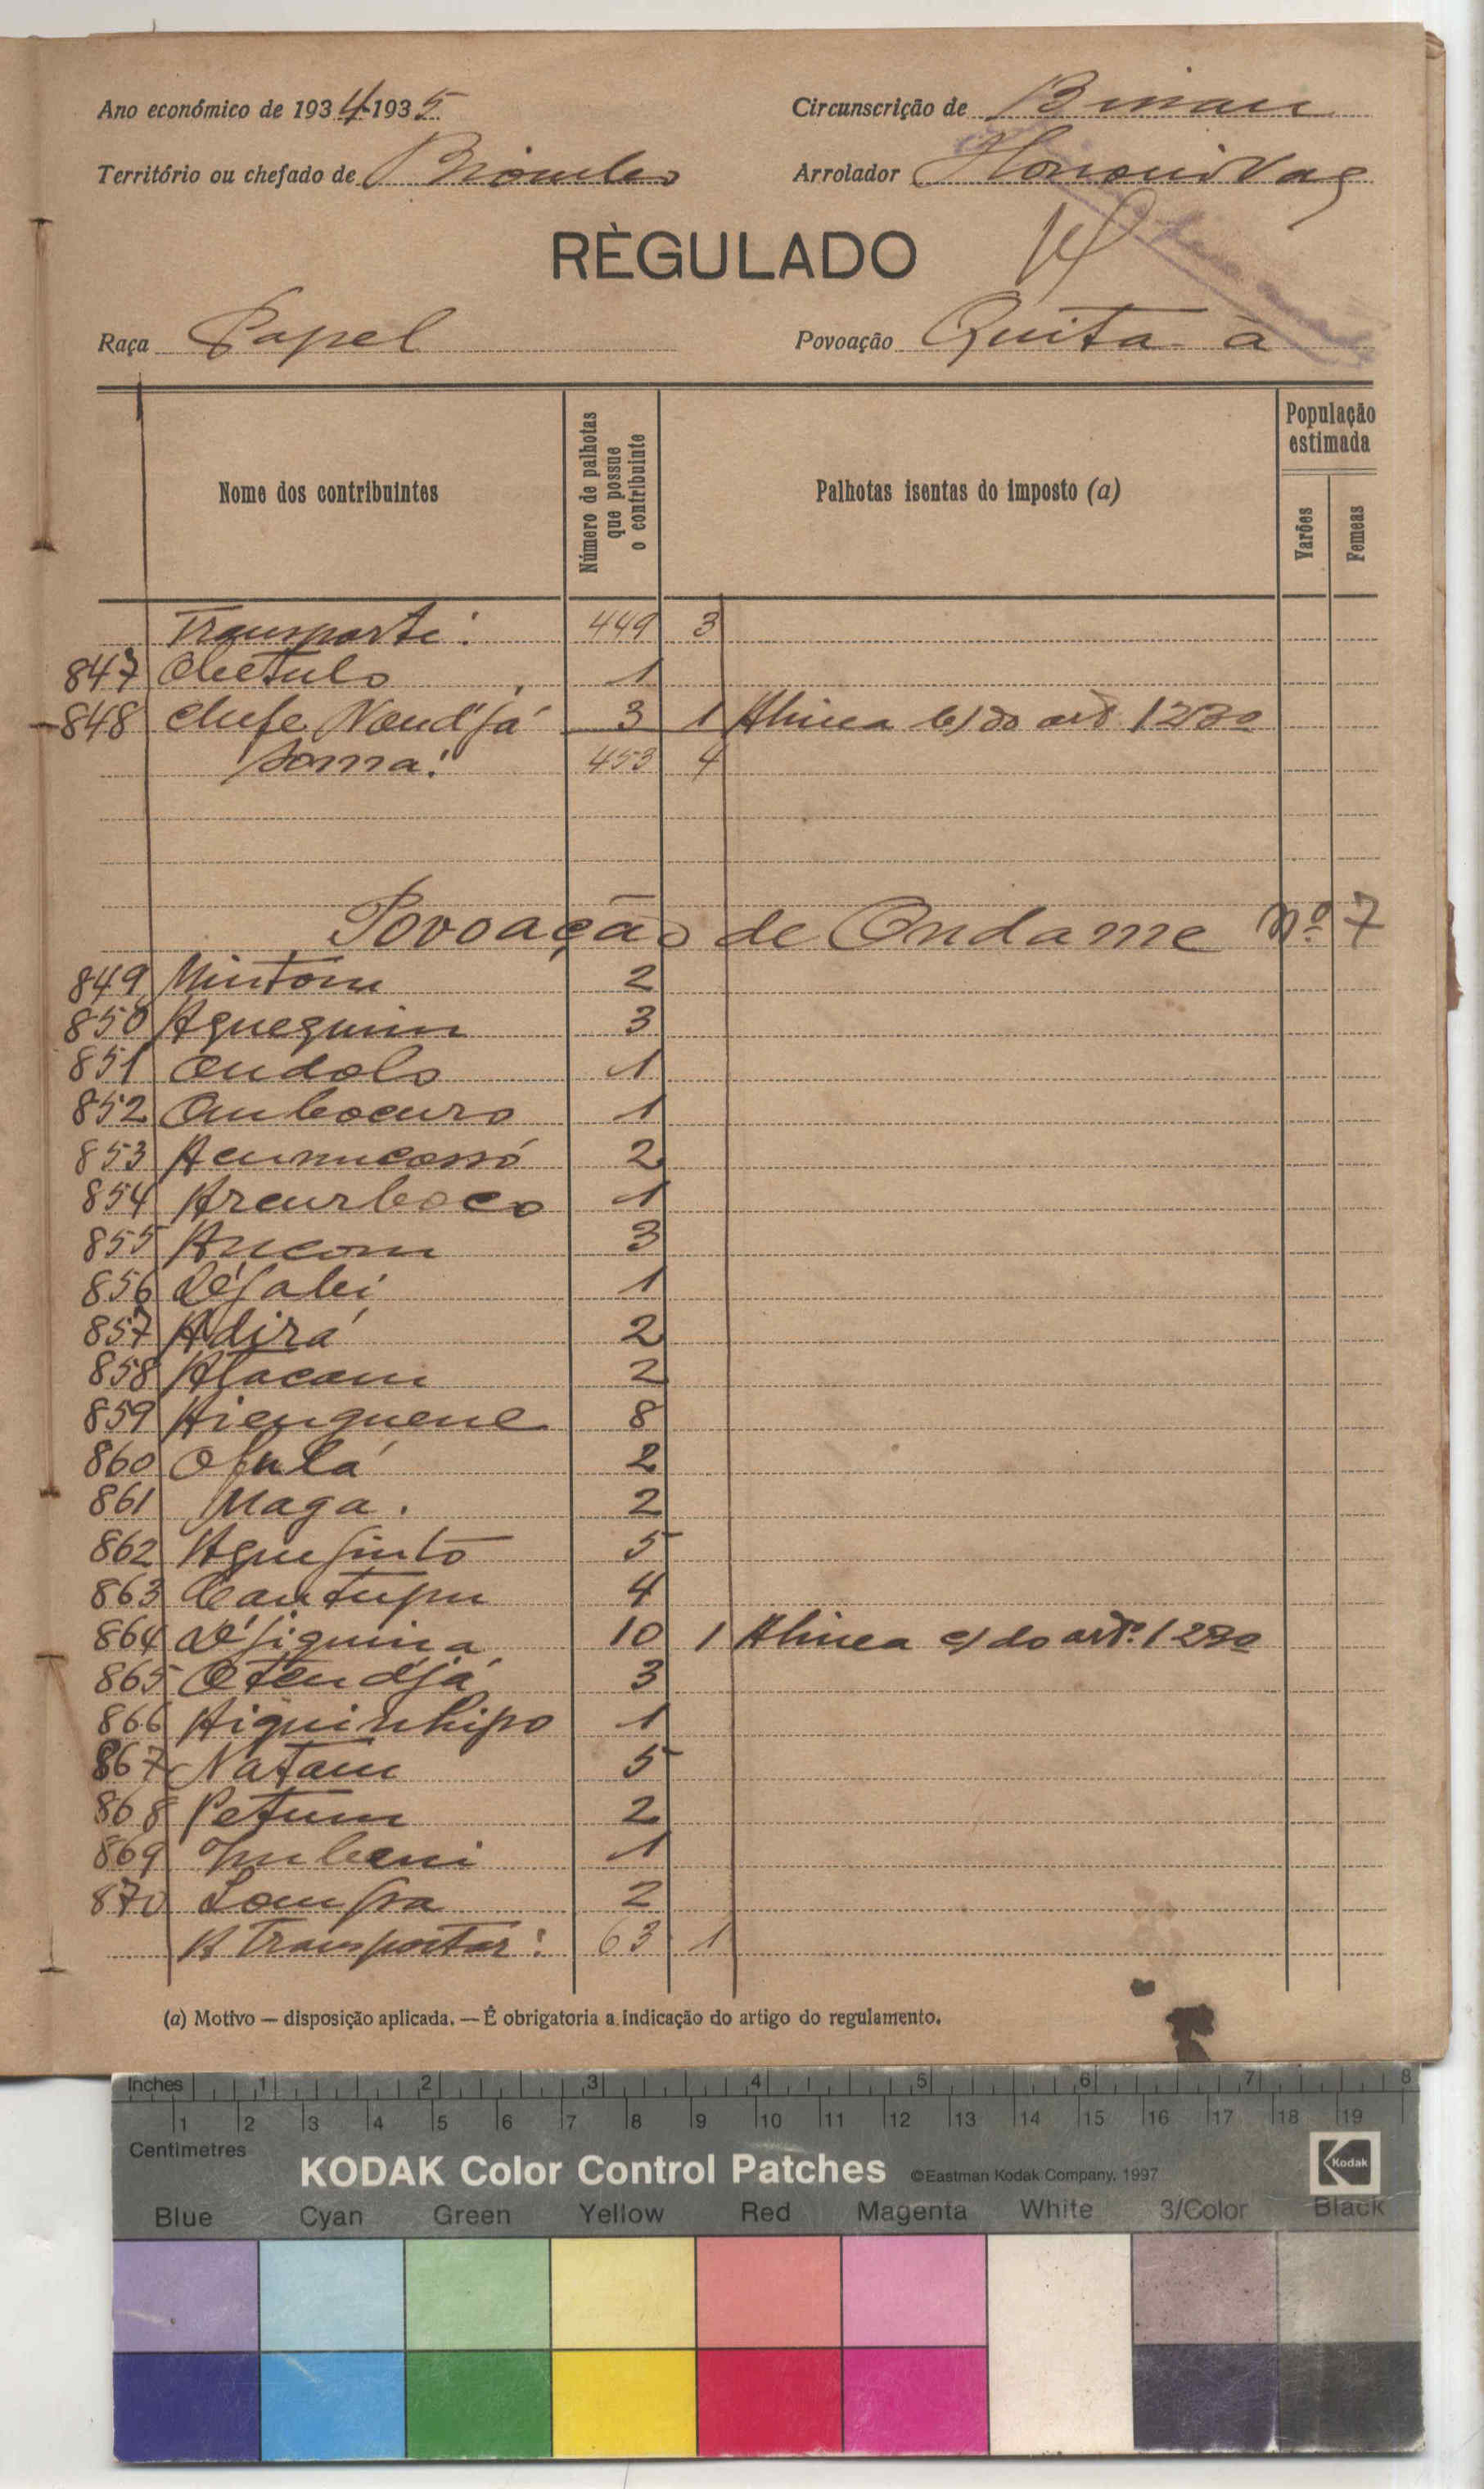 Ano económico de 1934-1935 Circunscrição de Bissau
Território ou chefado de Biombo Arrolador Honorio Vaz
RÈGULADO
Raça Papel Povoação Quita - á
Nome dos contribuintes
Número de palhotas que possue o contribuinte
Palhotas isentas do imposto (a)
População estimada
Varões
Femeas
Transporte: 449 3
847 1
848 chefe Nend'já 3 1 Alinea b) do artº 123º
Soma: 453 4
Povoação de Ondame Nº 7
849 Mintom 2
850 Aguequim 3
851 Ondolo 1
852 Ombocuro 1
853 2
854 Arcurboco 1
855 Ancom 3
856 D'jabi 1
857 Adirá 2
858 Atacam 2
859 Aienguene 8
860 Ofulá 2
861 Maga. 2
862 Aguejinto 5
863 Cantupu 4
864 D'jiquina 10 1 Alinea c) do artº. 123º
865 Otend'já 3
866 Aiquinhipo 1
867 Natam 5
868 Petum 2
869 1
870 2
A Transportar: 63 1
(a) Motivo — disposição aplicada. — É obrigatoria a indicação do artigo do regulamento.
Inches 1 2 3 4 5 6 7 8
1 2 3 4 5 6 7 8 9 10 11 12 13 14 15 16 17 18 19
Centimetres
KODAK Color Control Patches ©Eastman Kodak Company, 1997 Kodak
Blue Cyan Green Yellow Red Magenta White 3/Color Black